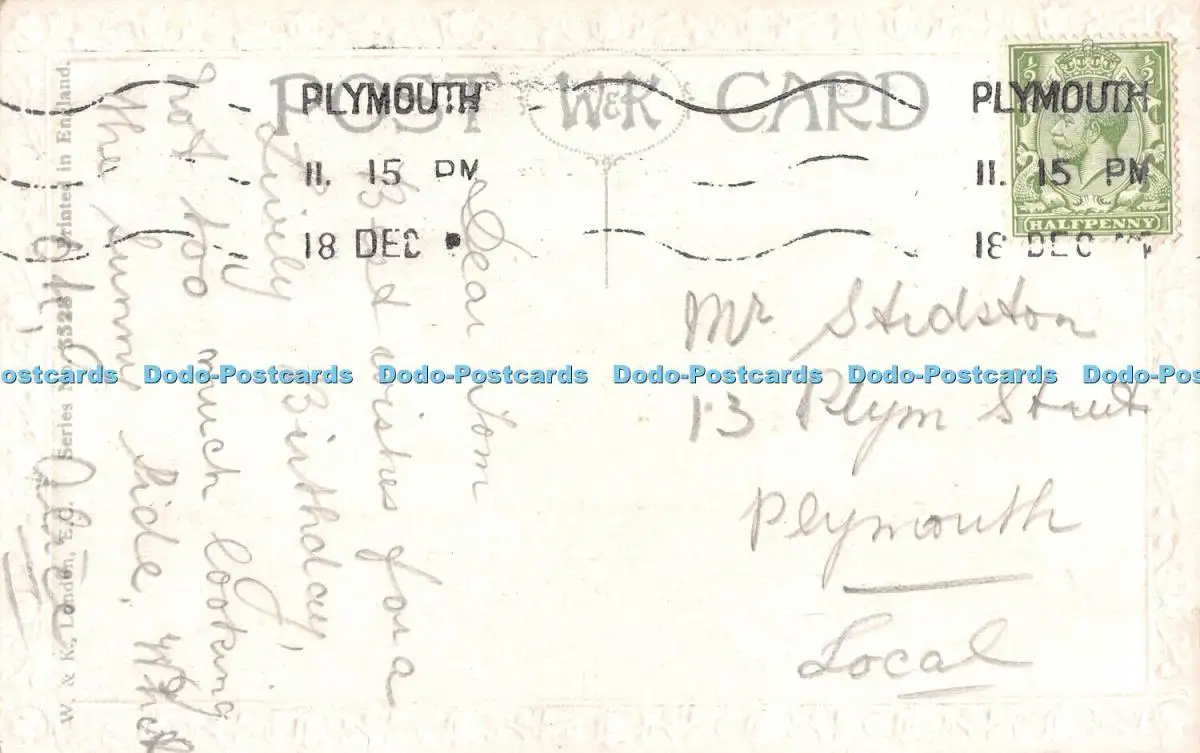 POST W&K CARD
PLYMOUTH
11. 15 PM
18 DEC
PLYMOUTH
11. 15 PM
18 DEC
HALFPENNY
Mr Stidston
13 Plym Street
Plymouth
Local
Dear Tom
Best wishes for a
Lively Birthday,
not too much looking
the sunny side, What
Oh!
W. & K., London, E.C. Series No 5528 Printed in England.
Dodo-Postcards Dodo-Postcards Dodo-Postcards Dodo-Postcards